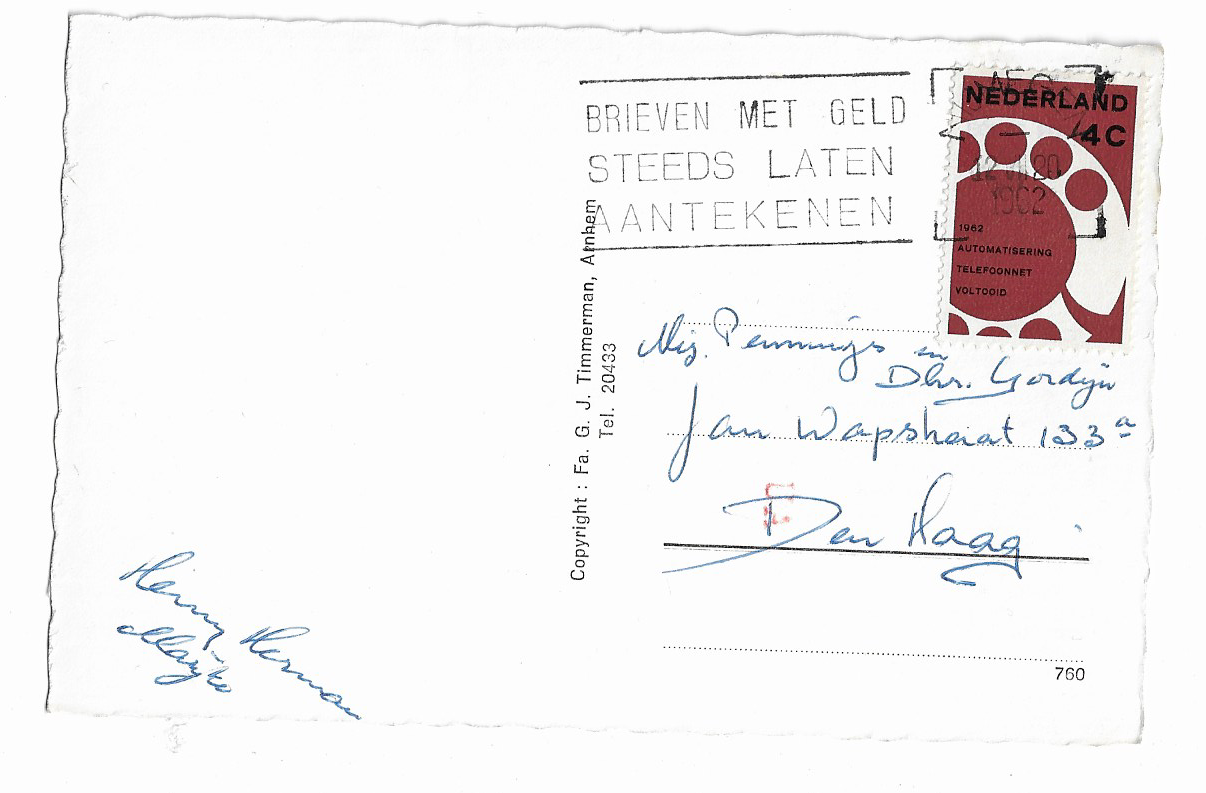 BRIEVEN MET GELD
STEEDS LATEN
AANTEKENEN
NEDERLAND
4C
1962
1962
AUTOMATISERING
TELEFOONNET
VOLTOOID
Copyright : Fa. G. J. Timmerman, Arnhem
Tel. 20433
Mej. Pennings en
Dhr. Gordijn
Jan Wapstraat 133a
Den Haag
Henny Herman
Marijke
760